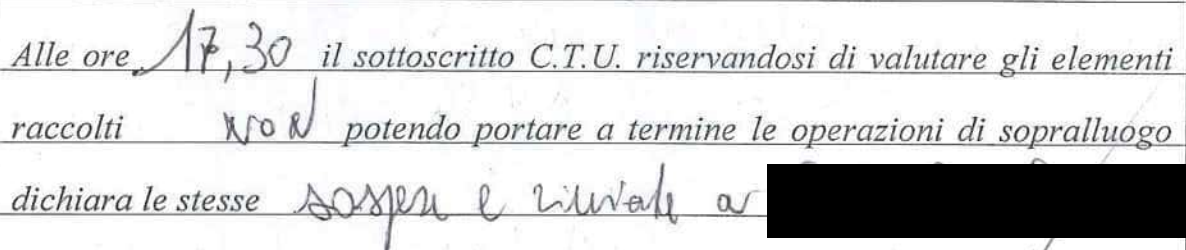 Alle ore 17,30 il sottoscritto C.T.U. riservandosi di valutare gli elementi
raccolti NON potendo portare a termine le operazioni di sopralluogo
dichiara le stesse sospese e rinviate a